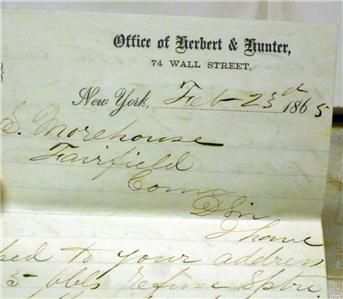 Office of Herbert & Hunter,
74 WALL STREET,
New York, Feb 23d 1865
S. Morehouse
Fairfield
Conn
D Sir
I have
ped to your address
5 bbls refuse Spts